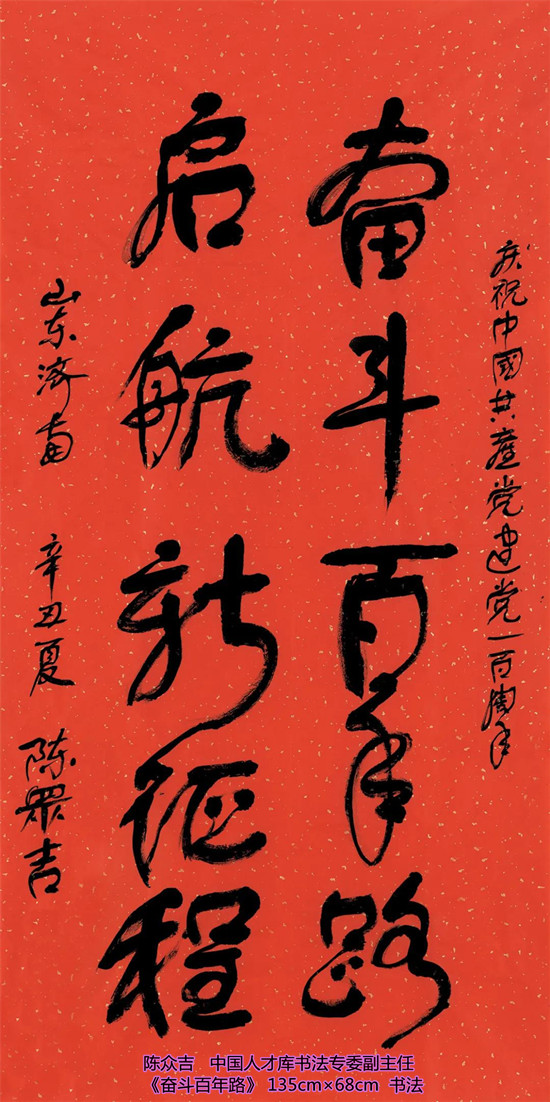 庆祝中國共産党建党一百周年
奋斗百年路
启航新征程
山东济南 辛丑夏 陈眾吉
陈众吉 中国人才库书法专委副主任
《奋斗百年路》 135cm×68cm 书法